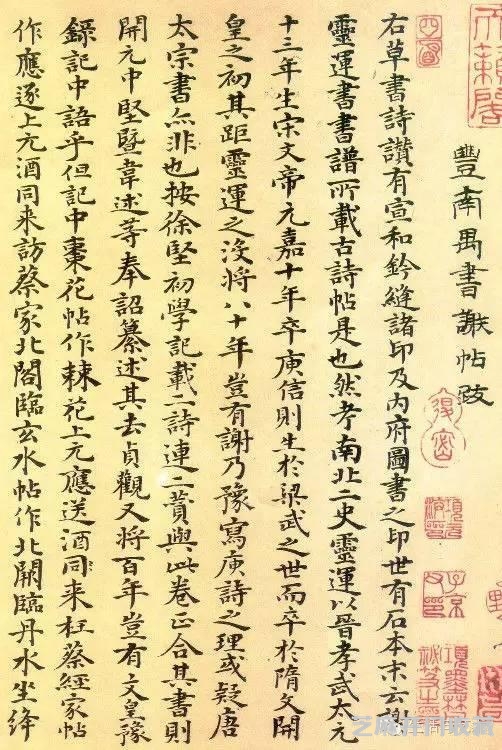 豐南禺書謝帖跋
右草書詩讚有宣和鈐縫諸印及內府圖書之印世有石本末云謝
靈運書書譜所載古詩帖是也然考南北二史靈運以晉孝武太元
十三年生宋文帝元嘉十年卒庾信則生於梁武之世而卒於隋文開
皇之初其距靈運之沒將八十年豈有謝乃豫寫庾詩之理或疑唐
太宗書亦非也按徐堅初學記載二詩連二贊與此卷正合其書則
開元中堅暨韋述等奉詔纂述其去貞觀又將百年豈有文皇豫
錄記中語乎但記中棗花帖作棘花上元應送酒同來枉蔡經家帖
作應逐上元酒同来訪蔡家北閣臨玄水帖作北闕臨丹水坐絳
天籟閣
項元汴印
子京父印
項墨林
祕笈之印